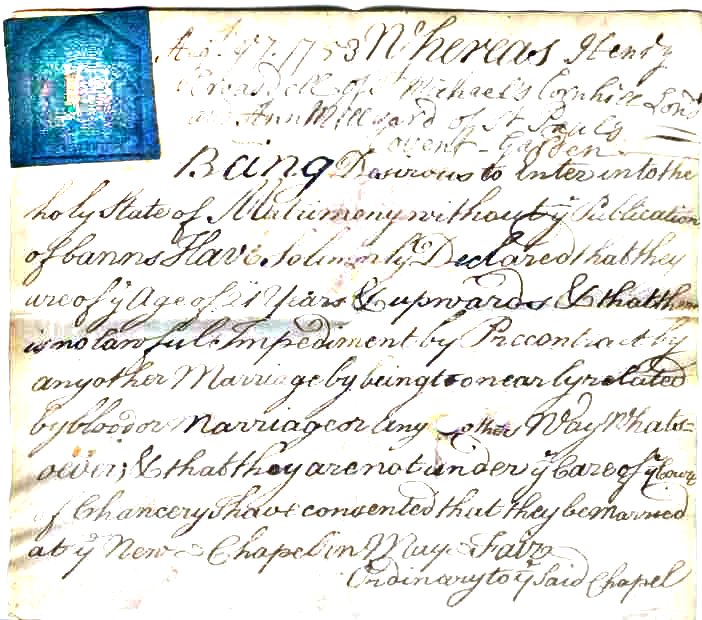 17. 1753 Whereas Henry
of St Michael's Cornhill Lond
Ann Millyard of St Paul's
Covent-Garden
Being Desirous to Enter into the
holy State of Matrimony without ye Publication
of banns Have Solemnly Declared that they
are of ye Age of 21 Years & upwards & that there
is no lawfull Impediment by Precontract by
any other Marriage by being too nearly related
by blood or Marriage or Any other Way Whats=
oever; & that they are not under ye Care of ye Court
of Chancery & have consented that they be Married
at ye New Chapel in May Fair
Ordinary to ye Said Chapel